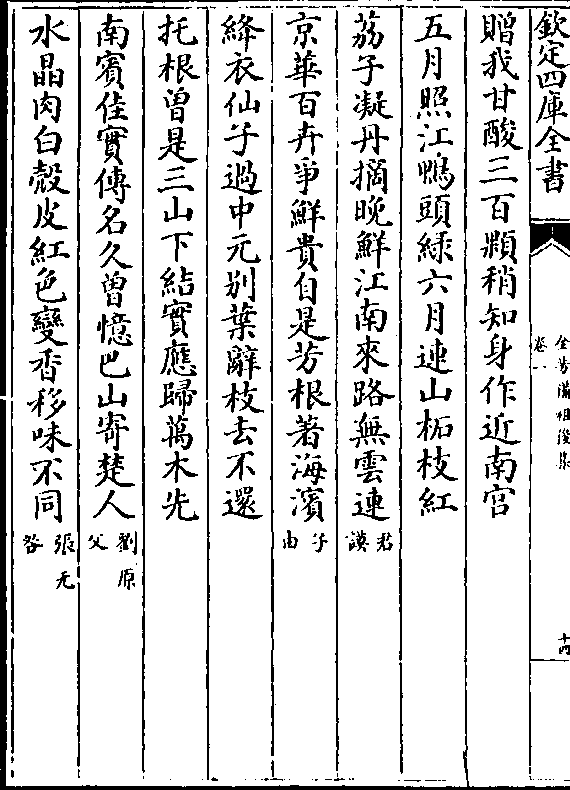 欽定四庫全書
全芳備祖後集
卷一
十四
贈我甘酸三百顆稍知身作近南宫
五月照江鴨頭綠六月連山柘枝紅
荔子凝丹摘晚鮮江南來路無雲連君謨
京華百卉爭鮮貴自是芳根著海濱子由
絳衣仙子過中元别葉辭枝去不還
托根曽是三山下結實應歸萬木先
南賓佳實傳名久曽憶巴山寄楚人劉原父
水晶肉白殻皮紅色變香移味不同張无咎